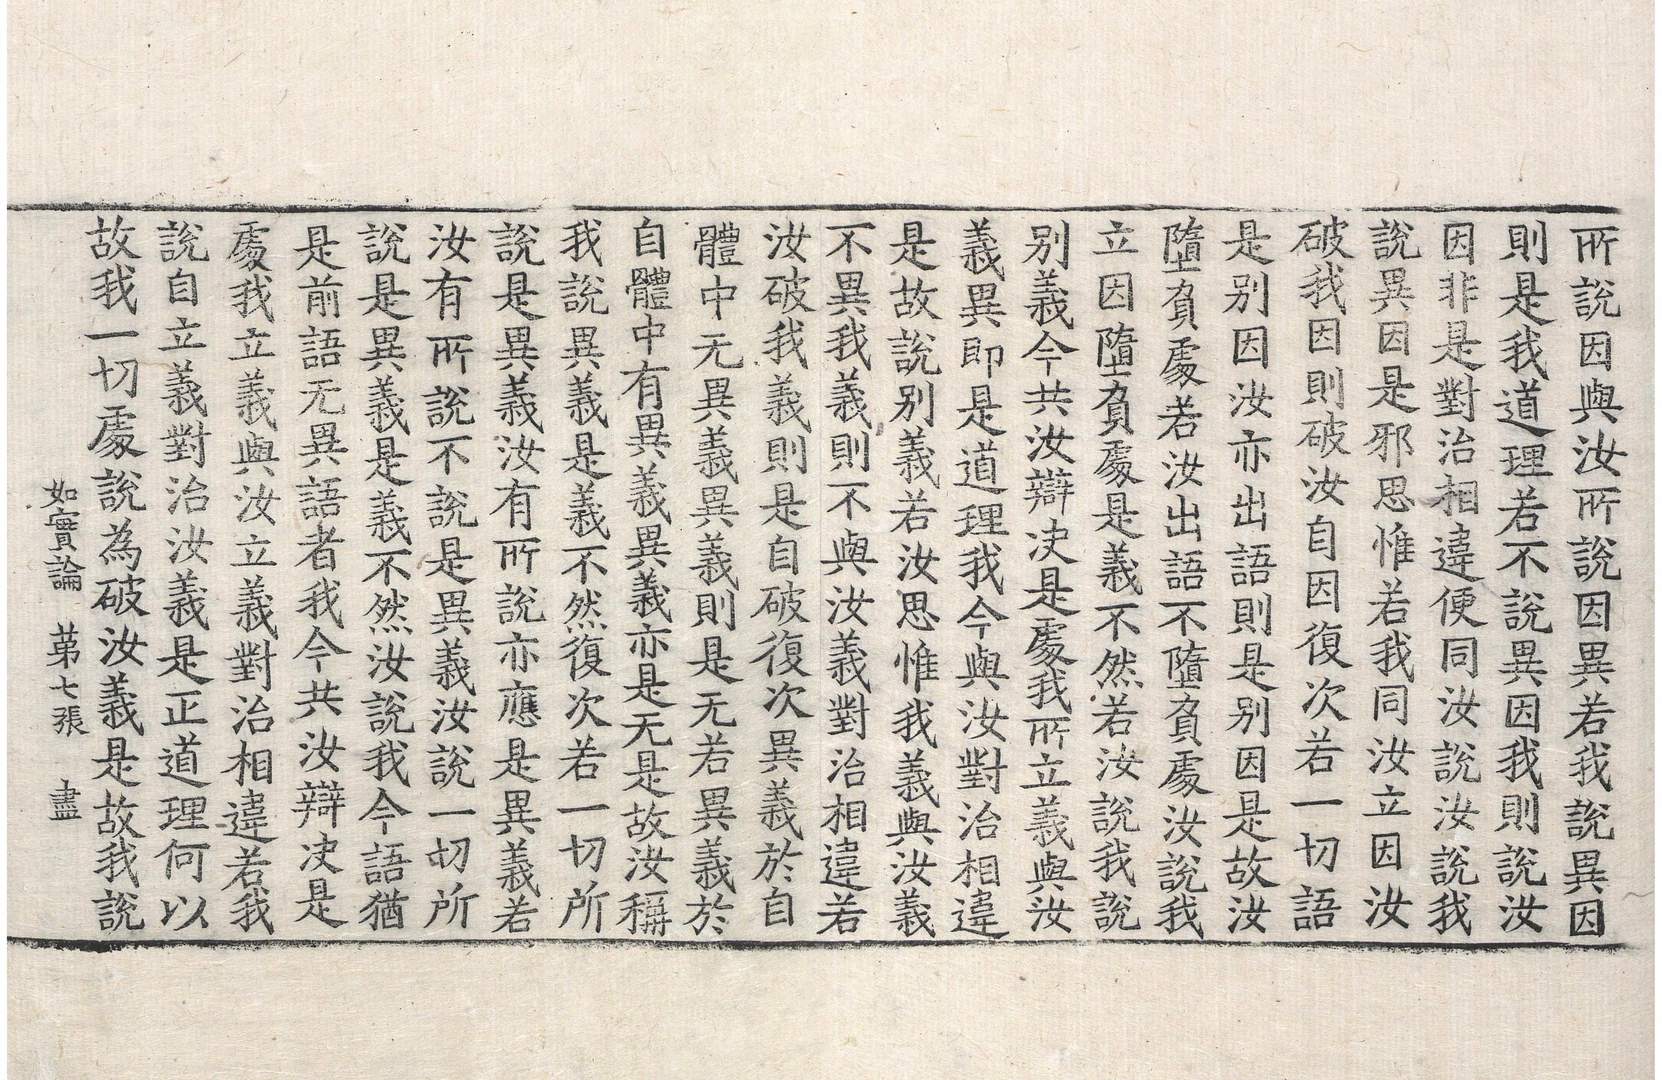 所說因與汝所說因異若我說異因
則是我道理若不說異因我則說汝
因非是對治相違便同汝說汝說我
說異因是邪思惟若我同汝立因汝
破我因則破汝自因復次若一切語
是別因汝亦出語則是別因是故汝
墮負處若汝出語不墮負處汝說我
立因墮負處是義不然若汝說我說
別義今共汝辯决是處我所立義與汝
義異即是道理我今與汝對治相違
是故說別義若汝思惟我義與汝義
不異我義則不與汝義對治相違若
汝破我義則是自破復次異義於自
體中无異義異義則是无若異義於
自體中有異義異義亦是无是故汝稱
我說異義是義不然復次若一切所
說是異義汝有所說亦應是異義若
汝有所說不說是異義汝說一切所
說是異義是義不然汝說我今語猶
是前語无異語者我今共汝辯决是
處我立義與汝立義對治相違若我
說自立義對治汝義是正道理何以
故我一切處說為破汝義是故我說
如實論 苐七張 盡